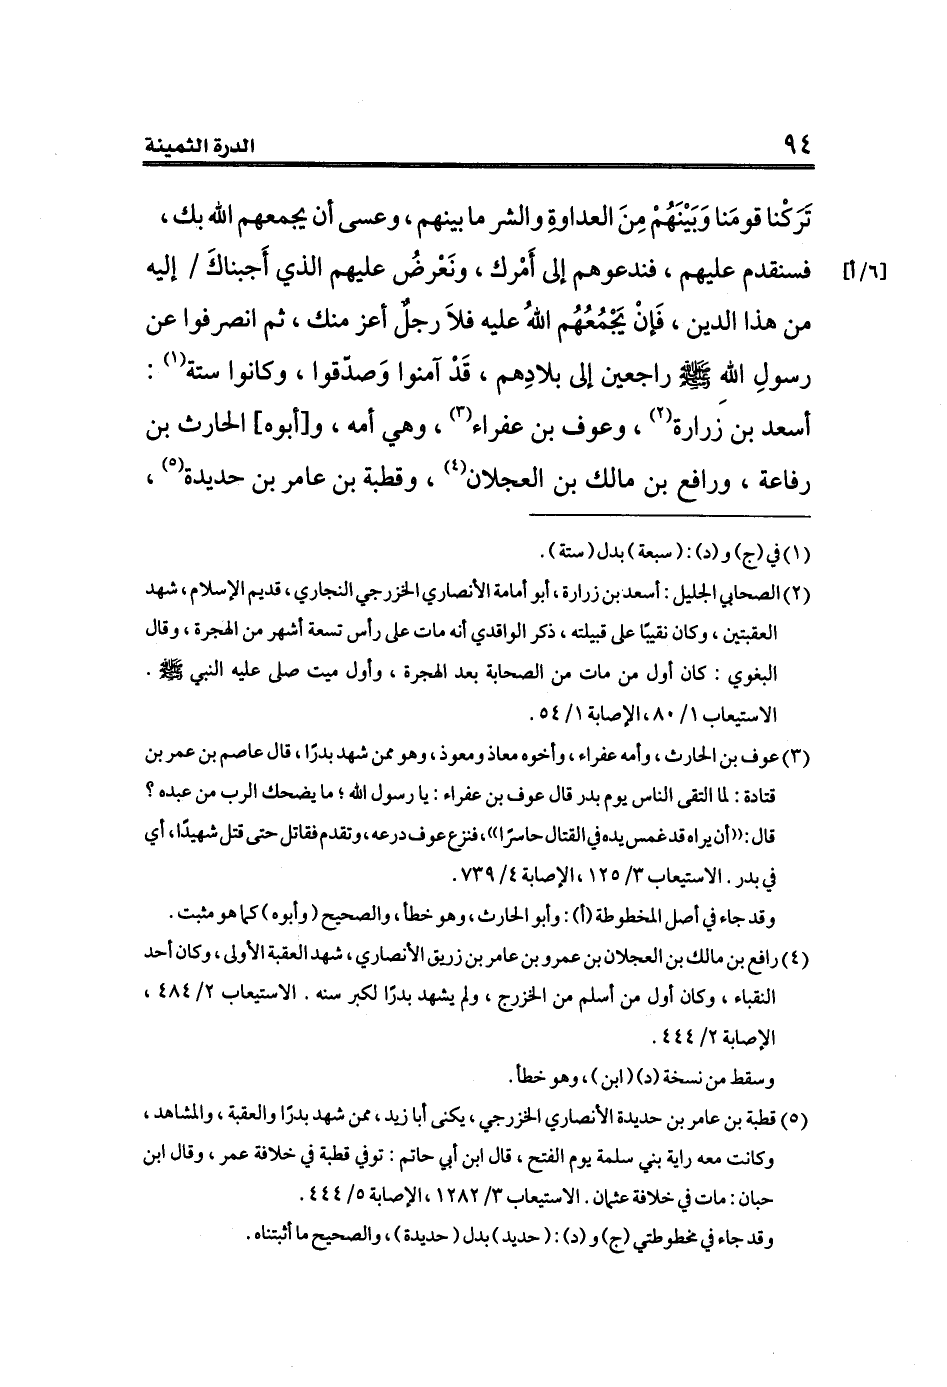 ٩٤ الدرة الثمينة
تَرَكْنا قومَنا وَبَيْنَهُمْ مِنَ العداوةِ والشر ما بينهم ، وعسى أن يجمعهم الله بك ،
فسنقدم عليهم ، فندعوهم إلى أَمْرك ، ونَعْرضُ عليهم الذي أَجبناكَ / إليه [٦/أ]
من هذا الدين ، فَإنْ يَجْمُعُهُم اللهُ عليه فلاَ رجلٌ أعز منك ، ثم انصرفوا عن
رسولِ اللهِ ﷺ راجعين إلى بلادِهم ، قَدْ آمنوا وَصدّقوا ، وكانوا ستة(١) :
أسعد بن زرارة(٢) ، وعوف بن عفراء(٣) ، وهي أمه ، و[أبوه] الحارث بن
رفاعة ، ورافع بن مالك بن العجلان(٤) ، وقطبة بن عامر بن حديدة(٥) ،
(١) في (ج) و (د) : ( سبعة ) بدل ( ستة ) .
(٢) الصحابي الجليل : أسعد بن زرارة ، أبو أمامة الأنصاري الخزرجي النجاري ، قديم الإسلام ، شهد
العقبتين ، وكان نقيبًا على قبيلته ، ذكر الواقدي أنه مات على رأس تسعة أشهر من الهجرة ، وقال
البغوي : كان أول من مات من الصحابة بعد الهجرة ، وأول ميت صلى عليه النبي ﷺ .
الاستيعاب ١/ ٨٠ ، الإصابة ١/ ٥٤ .
(٣) عوف بن الحارث ، وأمه عفراء ، وأخوه معاذ ومعوذ ، وهو ممن شهد بدرًا ، قال عاصم بن عمر بن
قتادة : لما التقى الناس يوم بدر قال عوف بن عفراء : يا رسول الله ؛ ما يضحك الرب من عبده ؟
قال : «أن يراه قد غمس يده في القتال حاسرًا» ، فنزع عوف درعه ، وتقدم فقاتل حتى قتل شهيدًا ، أي
في بدر . الاستيعاب ٣/ ١٢٥ ، الإصابة ٤/ ٧٣٩ .
وقد جاء في أصل المخطوطة (أ) : وأبو الحارث ، وهو خطأ ، والصحيح ( وأبوه ) كما هو مثبت .
(٤) رافع بن مالك بن العجلان بن عمرو بن عامر بن زريق الأنصاري ، شهد العقبة الأولى ، وكان أحد
النقباء ، وكان أول من أسلم من الخزرج ، ولم يشهد بدرًا لكبر سنه . الاستيعاب ٢/ ٤٨٤ ،
الإصابة ٢/ ٤٤٤ .
وسقط من نسخة (د) ( ابن ) ، وهو خطأ .
(٥) قطبة بن عامر بن حديدة الأنصاري الخزرجي ، يكنى أبا زيد ، ممن شهد بدرًا والعقبة ، والمشاهد ،
وكانت معه راية بني سلمة يوم الفتح ، قال ابن أبي حاتم : توفي قطبة في خلافة عمر ، وقال ابن
حبان : مات في خلافة عثمان . الاستيعاب ٣/ ١٢٨٢ ، الإصابة ٥/ ٤٤٤ .
وقد جاء في مخطوطتي (ج) و (د) : ( حديد ) بدل ( حديدة ) ، والصحيح ما أثبتناه .